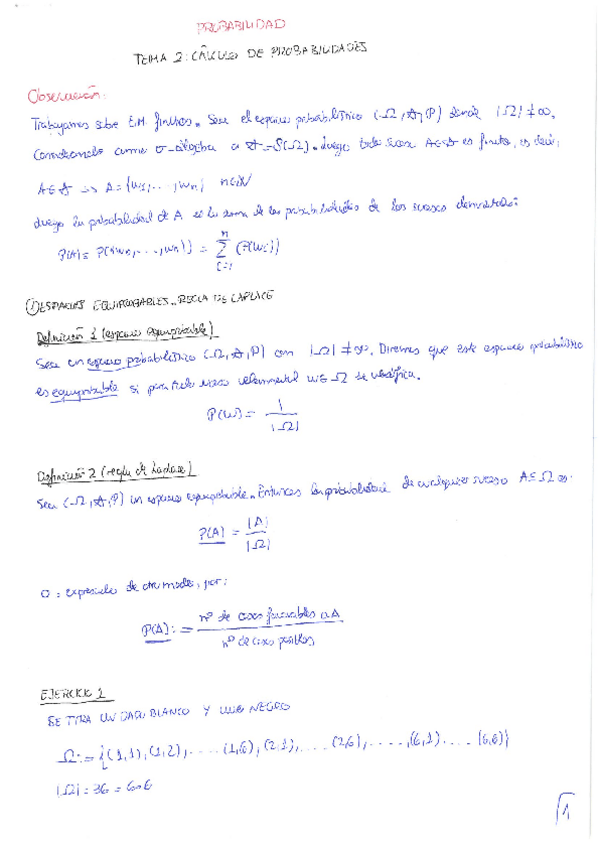 PROBABILIDAD
TEMA 2: CÁLCULO DE PROBABILIDADES
Observación:
Trabajamos sobre E.M. finitos. Sea el espacio probabilístico (Ω, A, P) donde |Ω| ≠ ∞,
considerando como σ-álgebra a A = S(Ω). Luego todo suceso A∈A es finito, es decir,
A∈A => A = {w₁, ..., wₙ} n∈N
Luego la probabilidad de A es la suma de las probabilidades de los sucesos elementales:
P(A) = P({w₁, ..., wₙ}) = ∑ⁿᵢ₌₁ (P(wᵢ))
① ESPACIOS EQUIPROBABLES. REGLA DE LAPLACE
Definición 1 (espacio equiprobable)
Sea un espacio probabilístico (Ω, A, P) con |Ω| ≠ ∞. Diremos que este espacio probabilístico
es equiprobable si para todo suceso elemental w∈Ω se verifica.
P(w) = 1 / |Ω|
Definición 2 (regla de Laplace)
Sea (Ω, A, P) un espacio equiprobable. Entonces la probabilidad de cualquier suceso A⊆Ω es:
P(A) = |A| / |Ω|
O, expresado de otro modo, por:
P(A) := nº de casos favorables a A / nº de casos posibles
EJERCICIO 1
SE TIRA UN DADO BLANCO Y UNO NEGRO
Ω := {(1,1), (1,2), .... (1,6), (2,1), .... (2,6), ....., (6,1) .... (6,6)}
|Ω| = 36 = 6·6
1